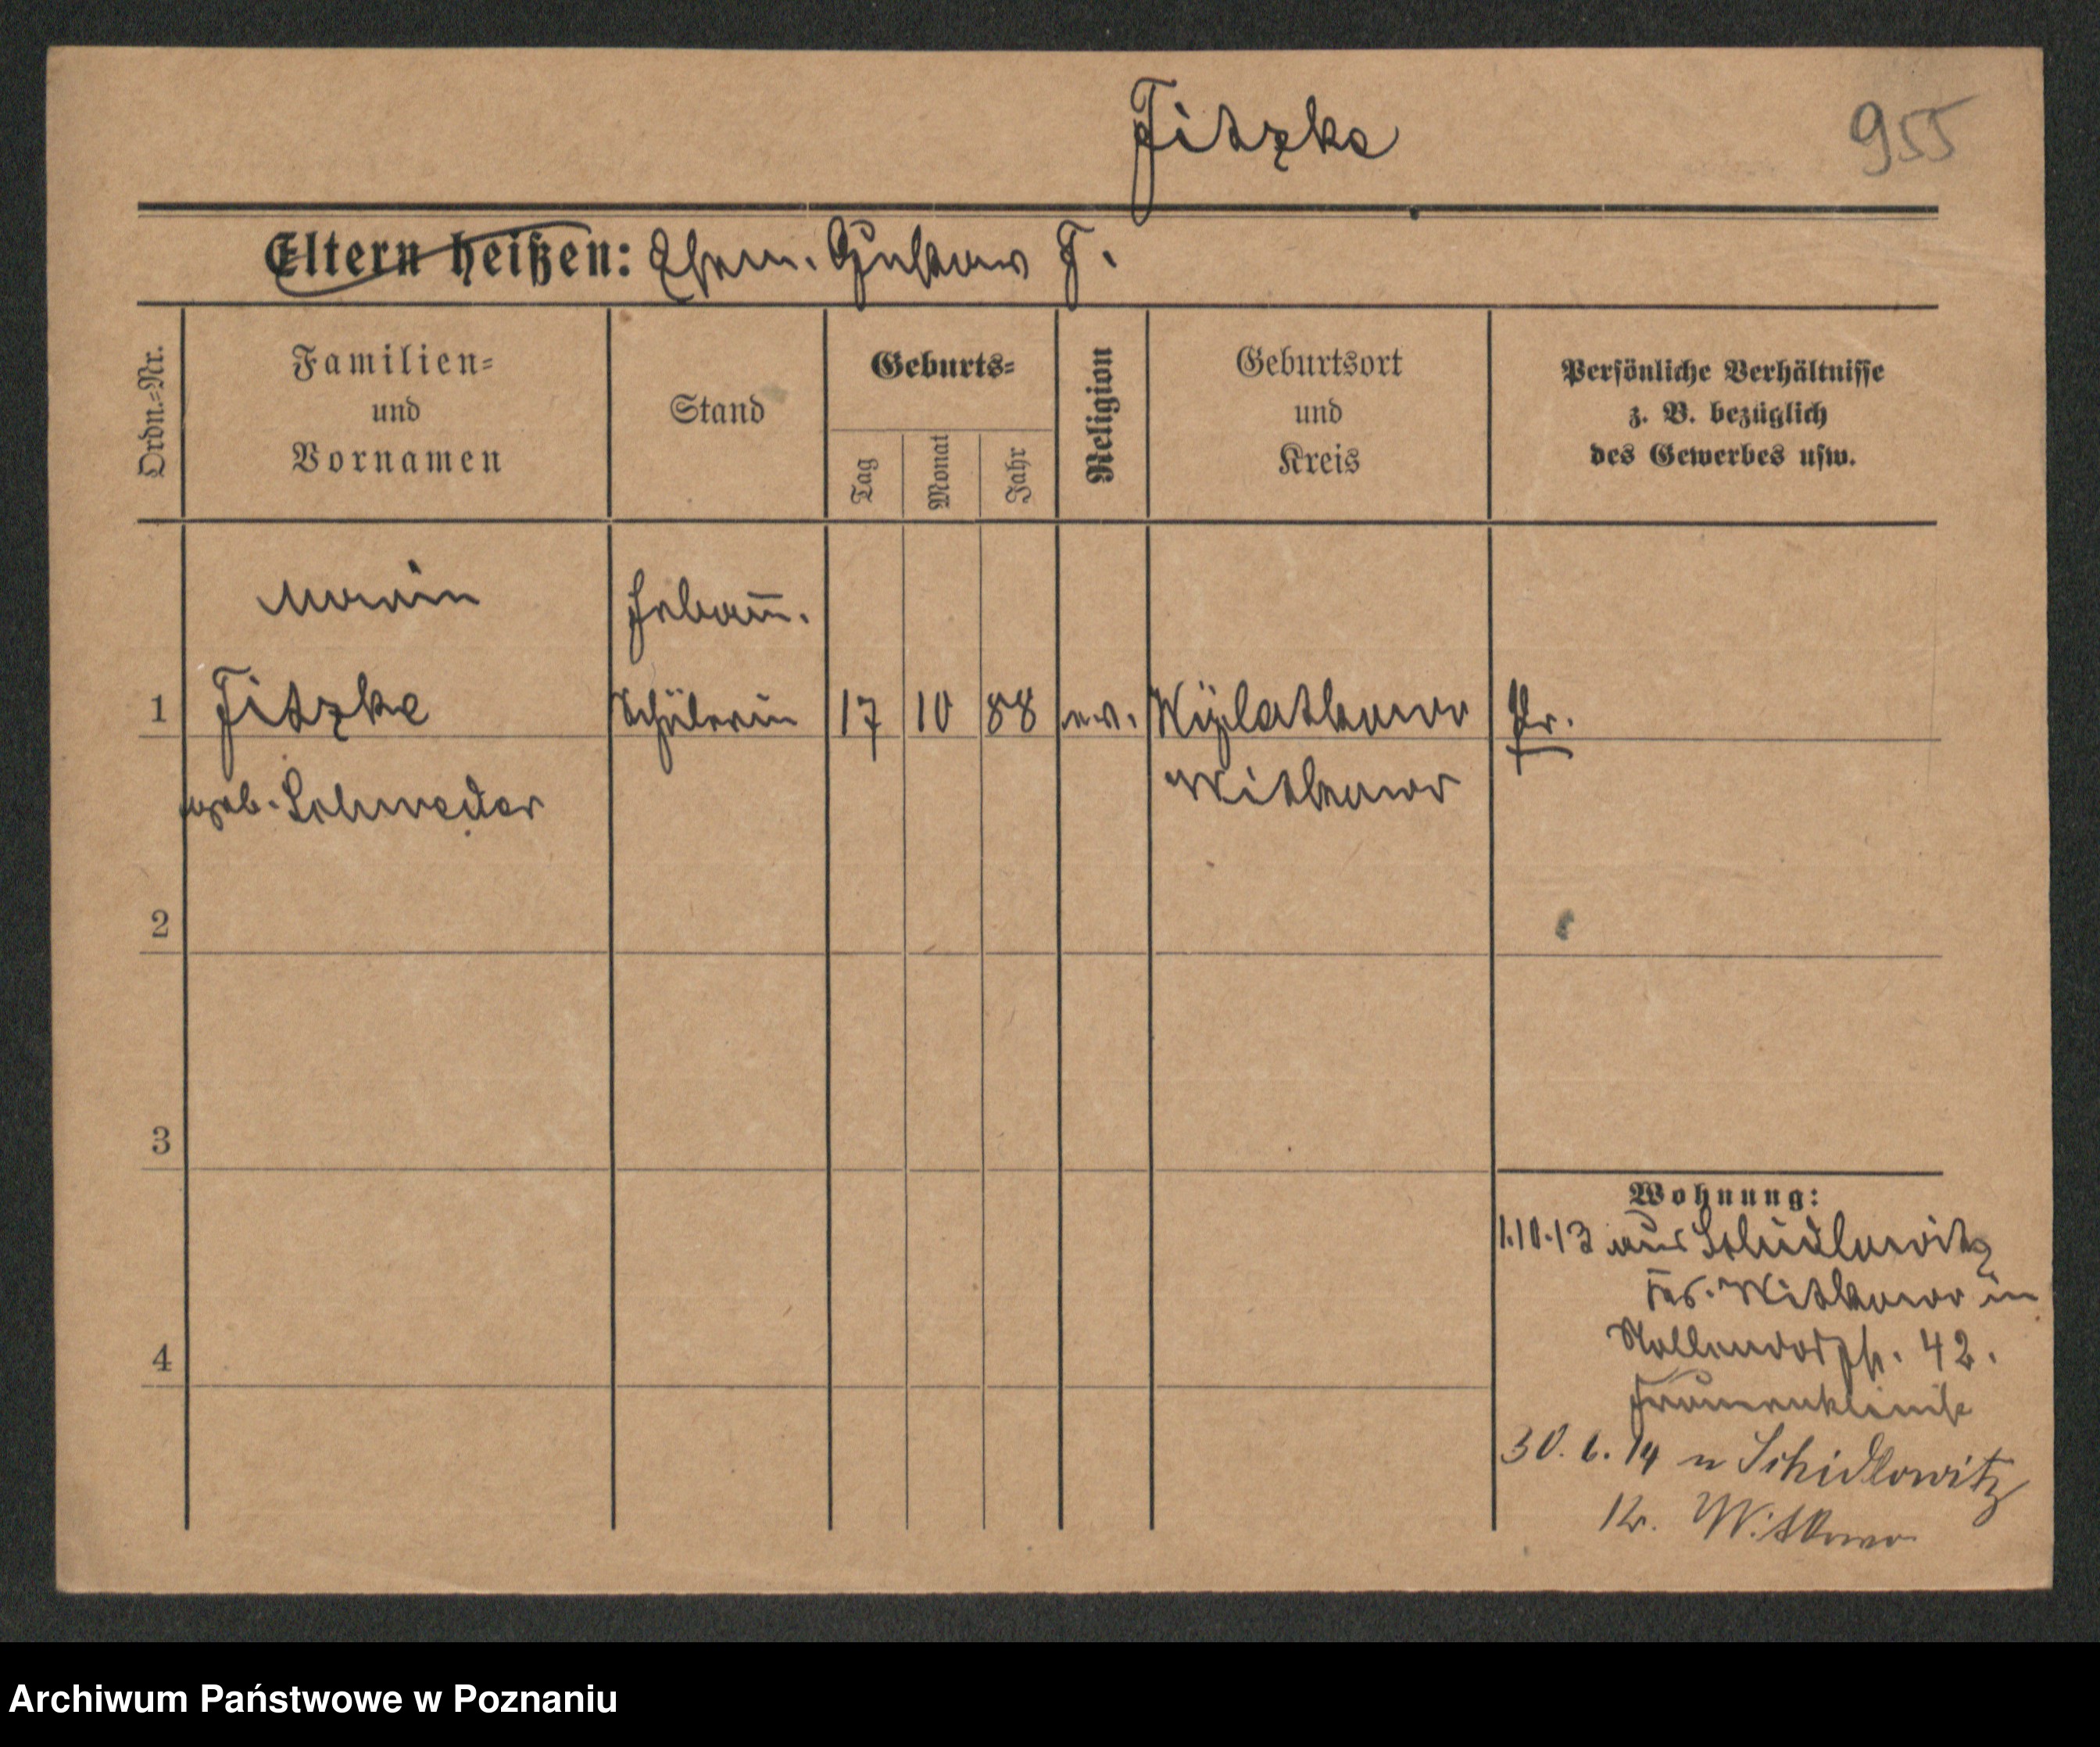 Fitzke
955
Eltern heißen: Ehem. Gustav F.
Ordn.=Nr.
Familien=
und
Vornamen
Stand
Geburts=
Tag
Monat
Jahr
Religion
Geburtsort
und
Kreis
Persönliche Verhältnisse
z. B. bezüglich
des Gewerbes usw.
Hebam̅.
1 Fitzke Schülerin 17 10 88 ev. Pr.
geb. Schweder Witkowo
2
3
4
Wohnung:
1.10.13 aus Schidlowitz
Krs. Witkowo in
Nollendorfstr. 42.
Frauenklinik
30. 6. 14 n Schidlowitz
Kr. Witkowo
Archiwum Państwowe w Poznaniu